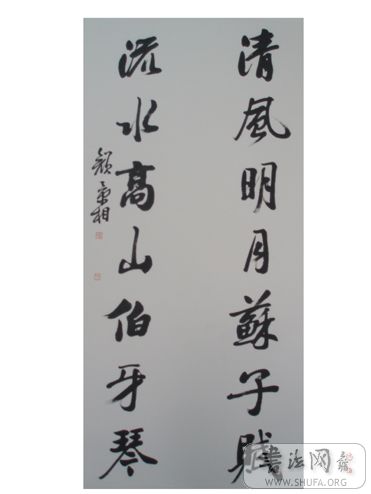 清風明月蘇子賦
流水高山伯牙琴
顏景相
書法网
WWW.SHUFA.ORG